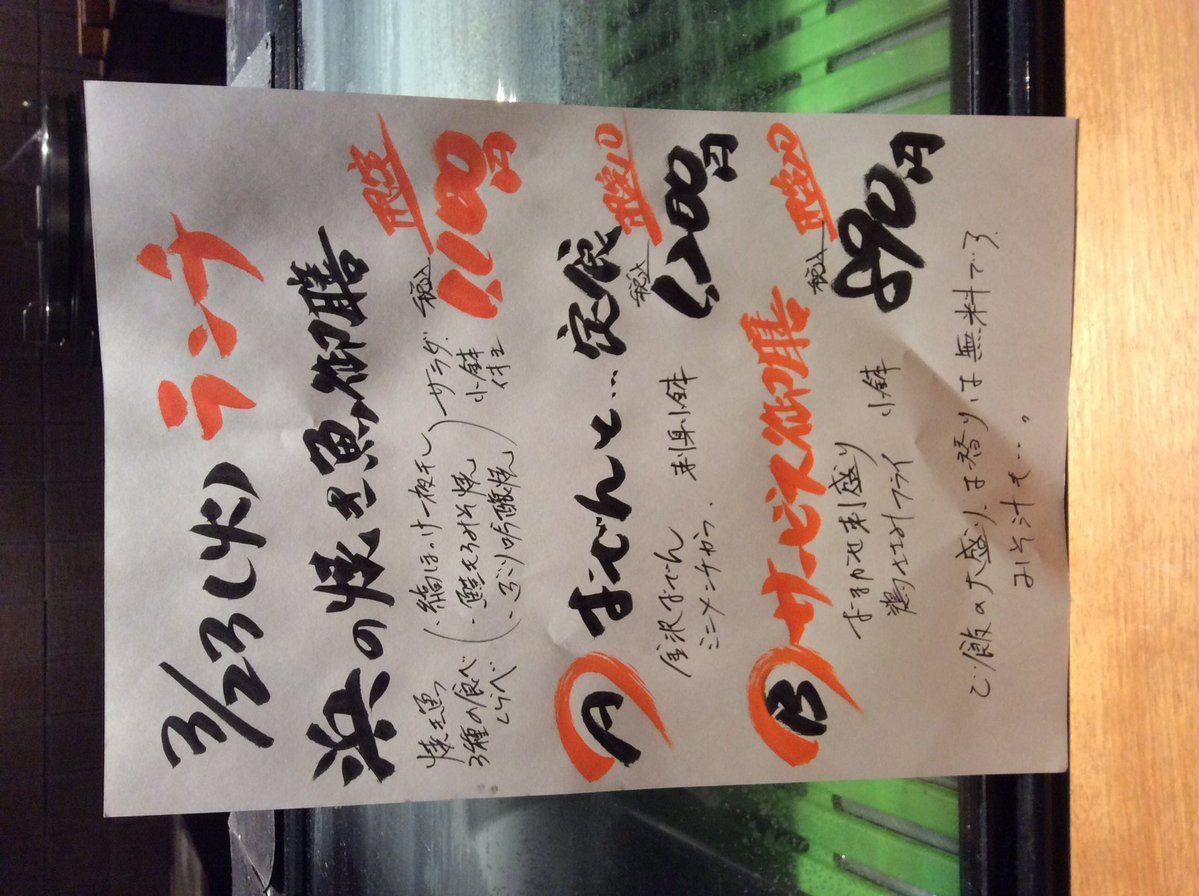 3/23(火) ランチ
浜の焼き魚御膳 限定
焼き魚 3種の食べくらべ
・縞ほっけ一夜干し
・鮭えろみそ焼
・ぶり吟醸焼
サラダ
小鉢
付き
税込 1,100円
A おでんと…定食 限定10
金沢おでん
ミニメンチかつ、刺身小鉢
税込 1,100円
B サービス御膳 限定20
おまかせ刺盛り
鶏ささみフライ 小鉢
税込 890円
ご飯の大盛り、お替りは無料です。
みそ汁も…。